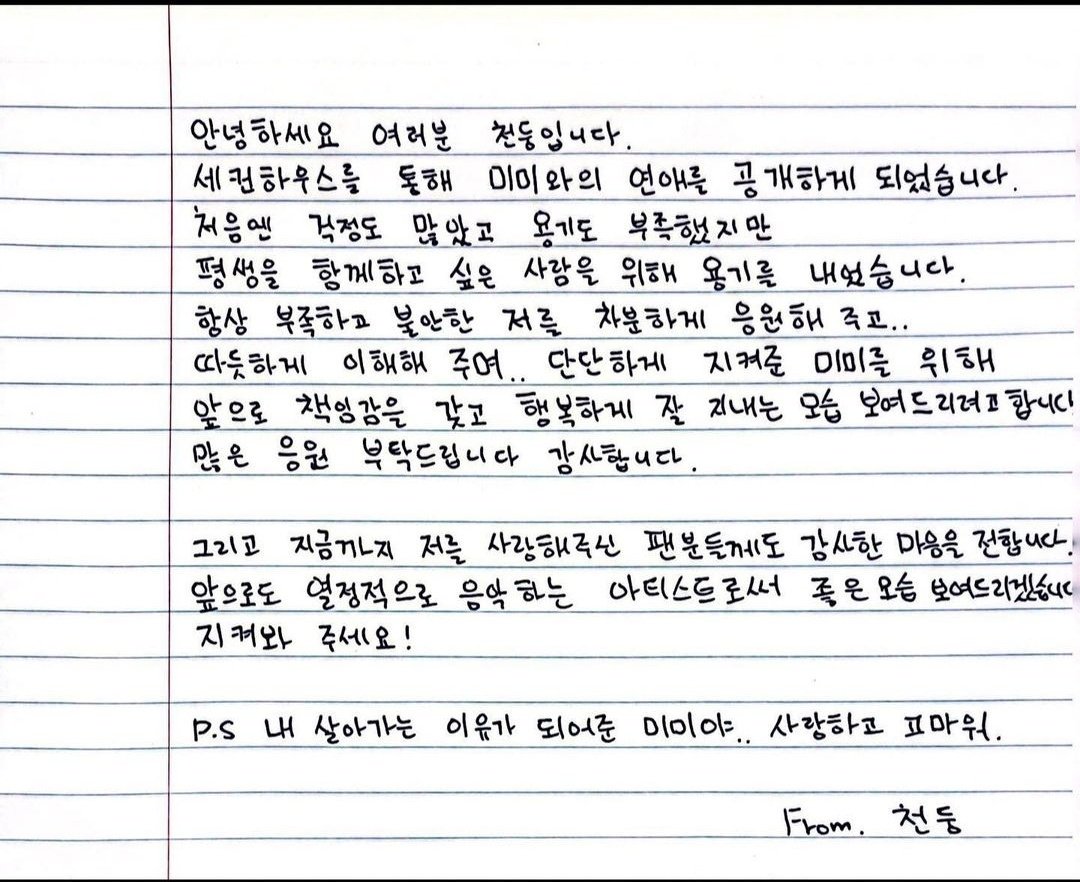 안녕하세요 여러분 천둥입니다.
세컨하우스를 통해 미미와의 연애를 공개하게 되었습니다.
처음엔 걱정도 많았고 용기도 부족했지만
평생을 함께하고 싶은 사람을 위해 용기를 내었습니다.
항상 부족하고 불안한 저를 차분하게 응원해 주고..
따듯하게 이해해 주며.. 단단하게 지켜준 미미를 위해
앞으로 책임감을 갖고 행복하게 잘 지내는 모습 보여드리려고 합니다
많은 응원 부탁드립니다 감사합니다.
그리고 지금까지 저를 사랑해주신 팬분들께도 감사한 마음을 전합니다.
앞으로도 열정적으로 음악하는 아티스트로써 좋은 모습 보여드리겠습니다
지켜봐 주세요!
P.S 내 살아가는 이유가 되어준 미미야.. 사랑하고 고마워.
From. 천둥